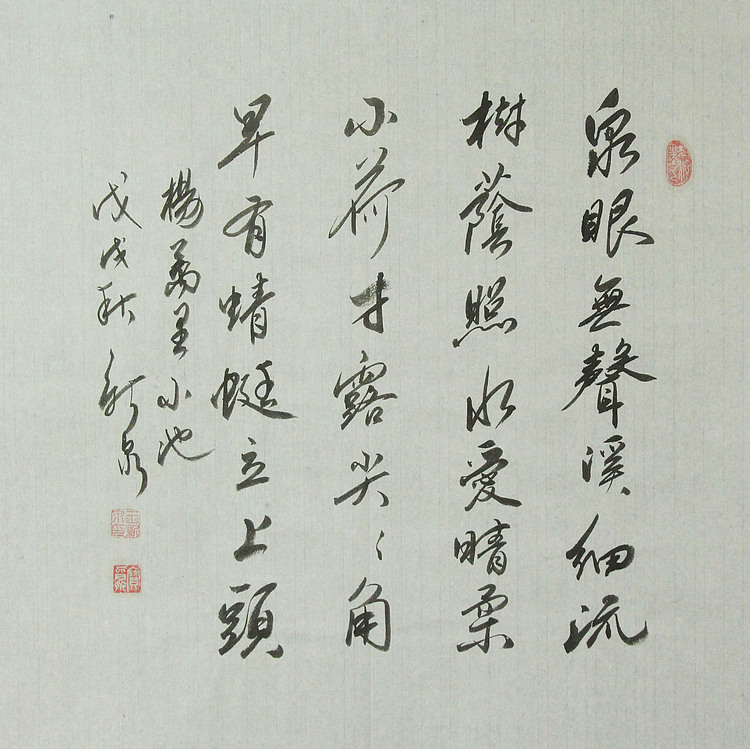 泉眼無聲溪細流
樹蔭照水愛晴柔
小荷才露尖〻角
早有蜻蜓立上頭
楊萬里小池
戊戌秋新泉